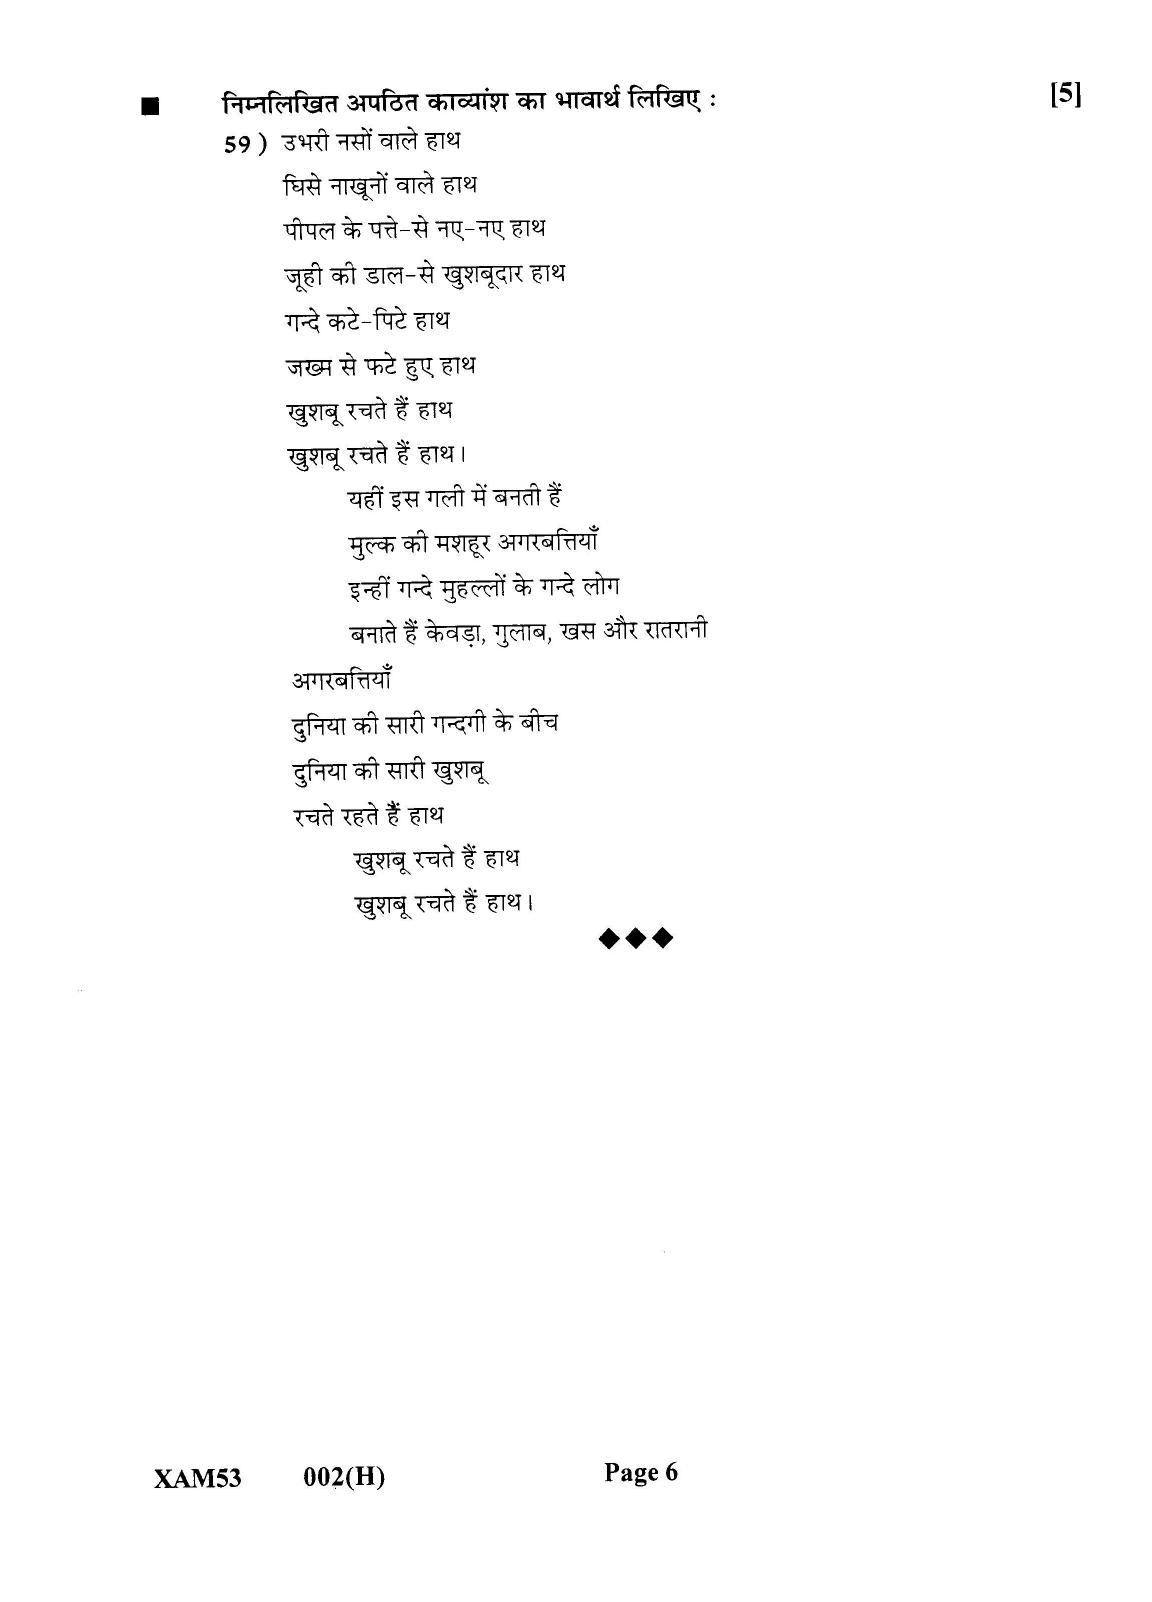 ■ निम्नलिखित अपठित काव्यांश का भावार्थ लिखिए : [5]
59 ) उभरी नसों वाले हाथ
घिसे नाखूनों वाले हाथ
पीपल के पत्ते-से नए-नए हाथ
जूही की डाल-से खुशबूदार हाथ
गन्दे कटे-पिटे हाथ
जख्म से फटे हुए हाथ
खुशबू रचते हैं हाथ
खुशबू रचते हैं हाथ।
यहीं इस गली में बनती हैं
मुल्क की मशहूर अगरबत्तियाँ
इन्हीं गन्दे मुहल्लों के गन्दे लोग
बनाते हैं केवड़ा, गुलाब, खस और रातरानी
अगरबत्तियाँ
दुनिया की सारी गन्दगी के बीच
दुनिया की सारी खुशबू
रचते रहते हैं हाथ
खुशबू रचते हैं हाथ
खुशबू रचते हैं हाथ।
◆◆◆
XAM53 002(H) Page 6